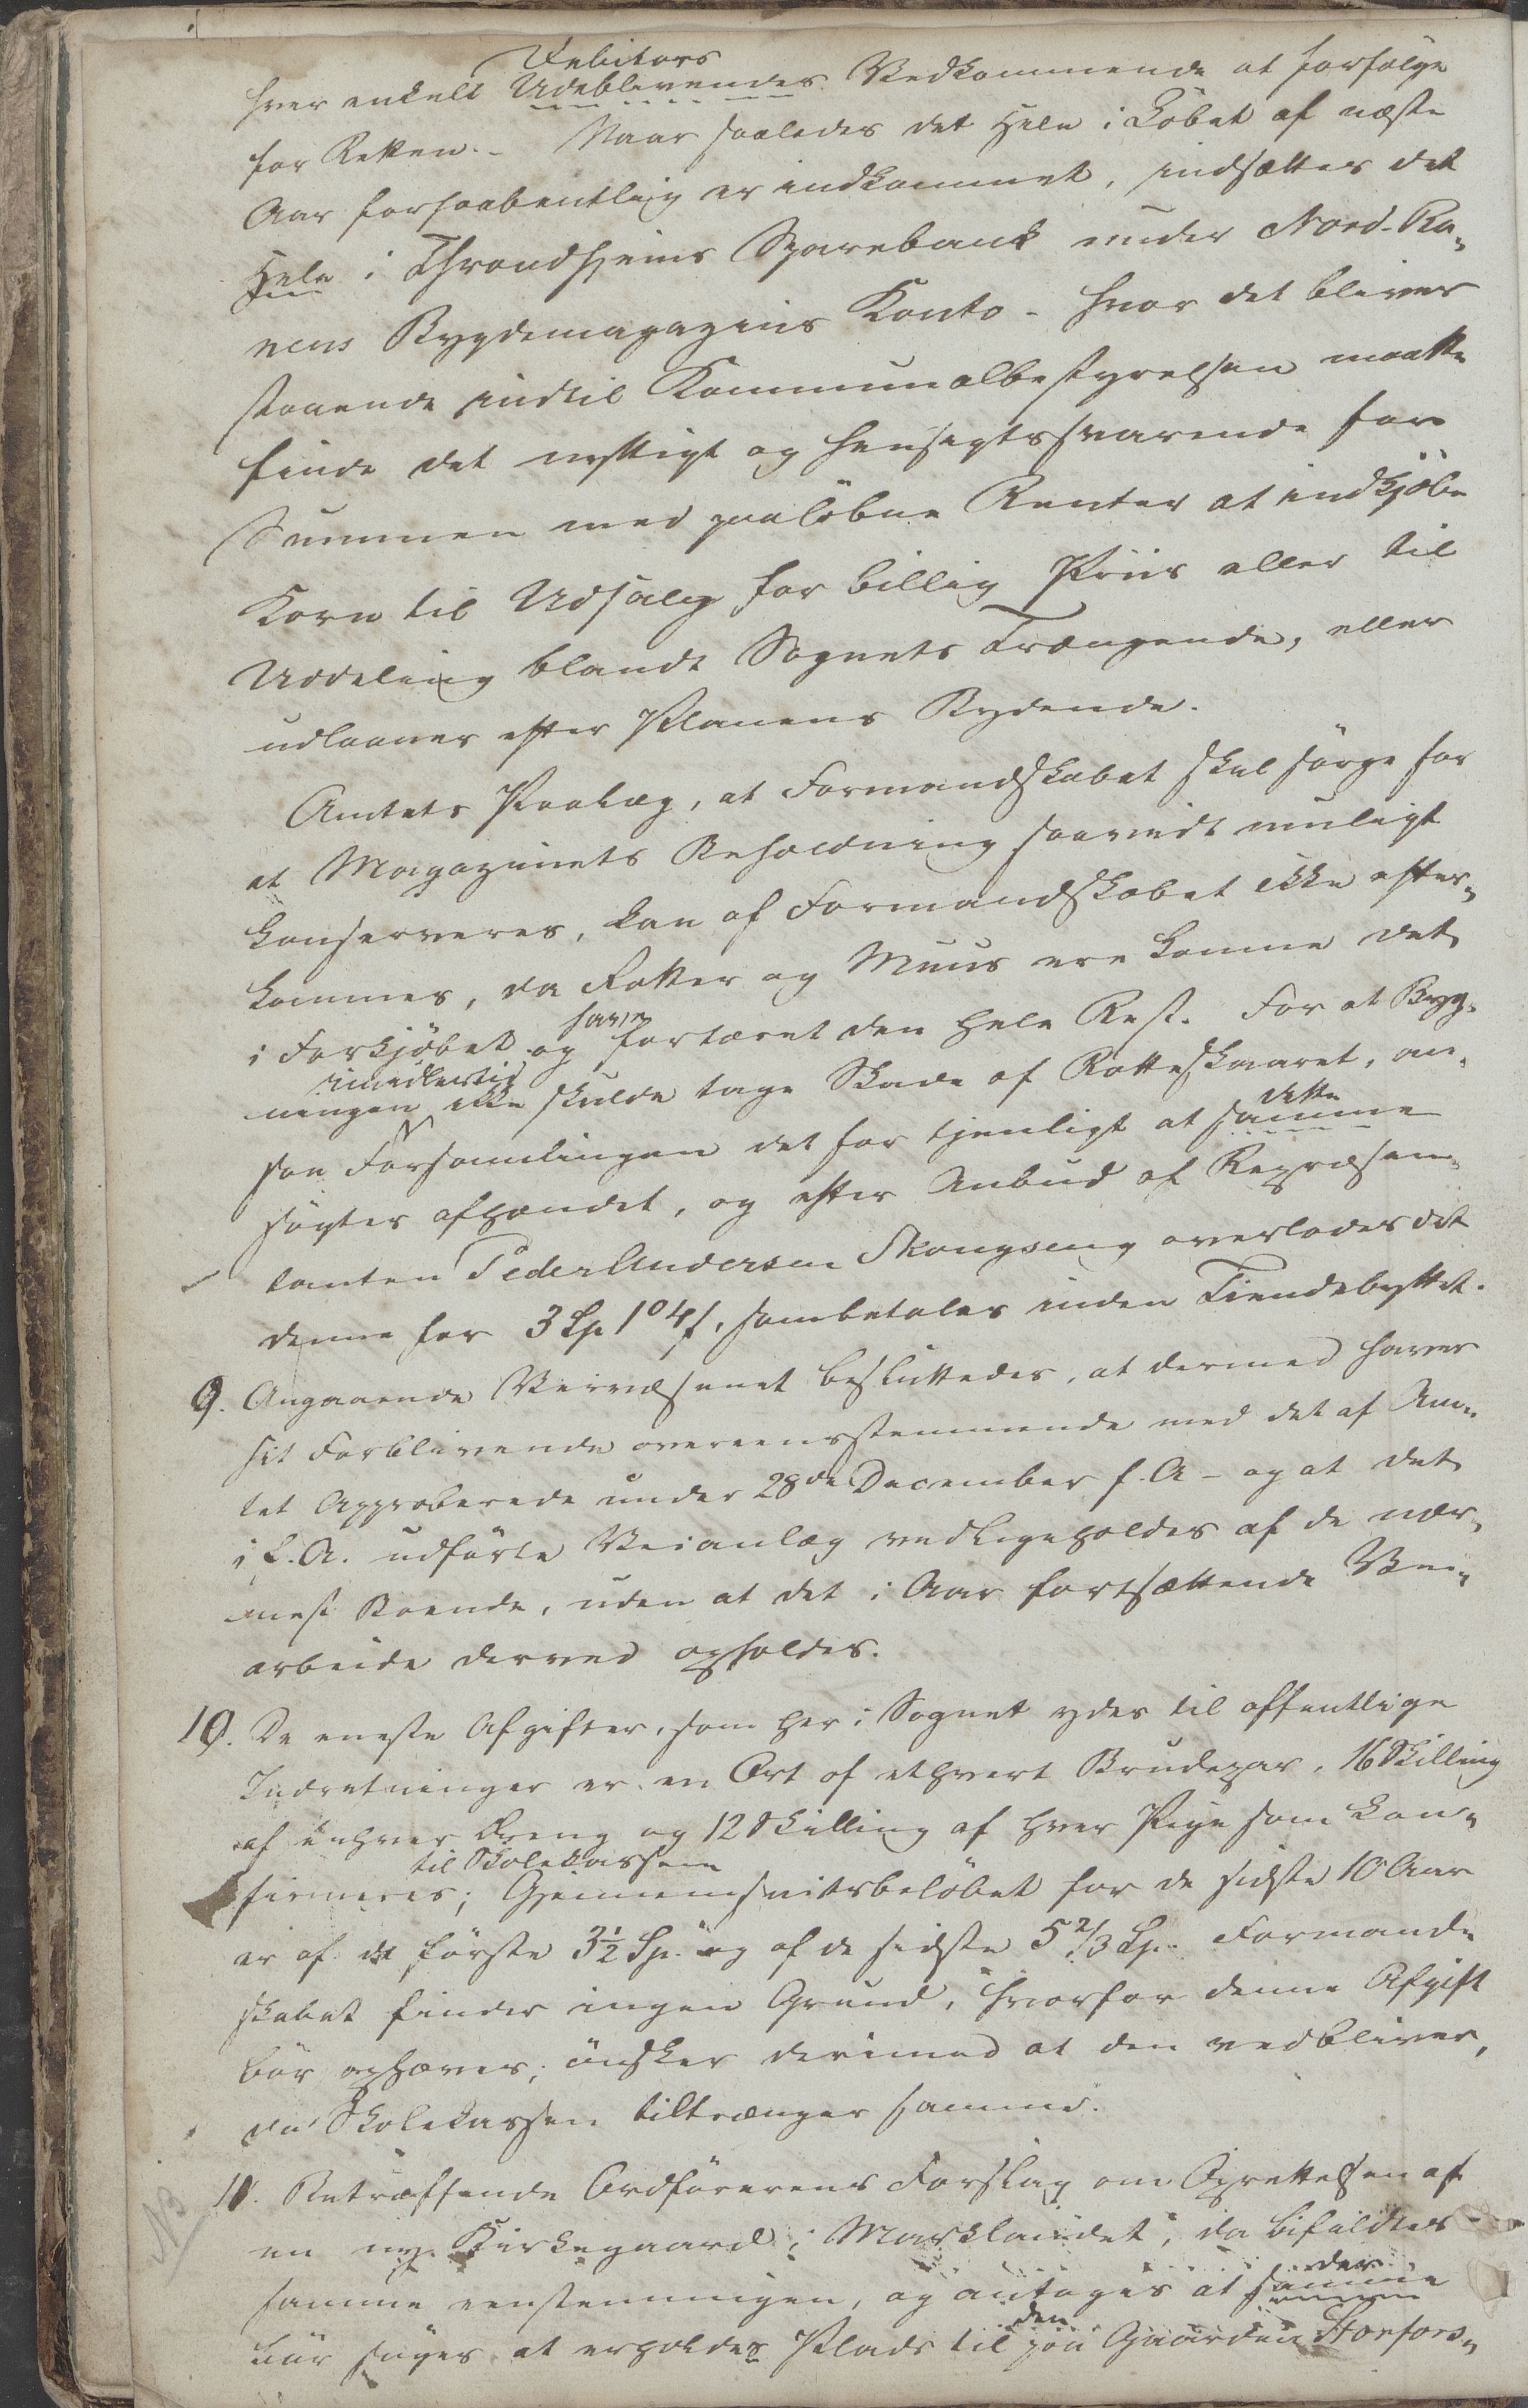 Debitors
hver enkelt Udeblivendes Vedkommende at forfølge
for Retten. – Naar saaledes det Hele i Løbet af næste
Aar forhaabentlig er indkommet, indsættes det
Hele i Throndhjems Sparebank under Nord-Ra„
nens Bygdemagazins Konto – hvor det bliver
staaende indtil Kommunalbestyrelsen maatte
finde det nyttigt og hensigtssvarende for
Summen med paaløbne Renter at indkjøbe
Korn til Udsalg for billig Priis eller til
Uddeling blandt Sognets Trængende, eller
udlaanes efter Planens Bydende.
Amtets Paalæg, at Formandskabet skal sørge for
at Magazinets Beholdning saavidt muligt
konserveres, kan af Formandskabet ikke efter„
kommes, da Rotter og Muus ere komne det
have
i Forkjøbet og fortæret den hele Rest. For at Byg„
imidlertid
ningen ikke skulde tage Skade af Rotteskaaret, an„
dette
saa Forsamlingen det for tjenligt at samme
søgtes afhændet, og efter Anbud af Repræsen„
tanten Peder Andersen Skongseng overlodes det
denne for 3 Sp 1 o 4 s, som betales inden Tiendebyttet.
9. Angaaende Veivæsenet besluttedes, at dermed haver
sit Forblivende overeensstemmende med det af Am„
tet Approberede under 28de December f. A – og at det
i f. A. udførte Veianlæg vedligeholdes af de nær„
mest Boende, uden at det i Aar fortsættende Vei„
arbeide derved opholdes.
10. De eneste Afgifter, som her i Sognet ydes til offentlige
Indretninger er en Ort af ethvert Brudepar, 16 Skilling
af enhver Dreng og 12 Skilling af hver Pige som kon„
til Skolekassen
firmeres; Gjennemsnitsbeløbet for de sidste 10 Aar
er af det første 3½ Sp. og af de sidste 5 2/3 Sp. Formand„
skabet finder ingen Grund, hvorfor denne Afgift
bør ophæves; ønsker derimod at den vedbliver,
da Skolekassen tiltrænger samme.
NB
11. Betræffende Ordførerens Forslag om Oprettelsen af
en ny Kirkegaard i Marklandet, da bifaldtes
der
samme eenstemmigen, og antoges at samme
den
bør søges at erholdes Plads til paa Gaarden Storfors„